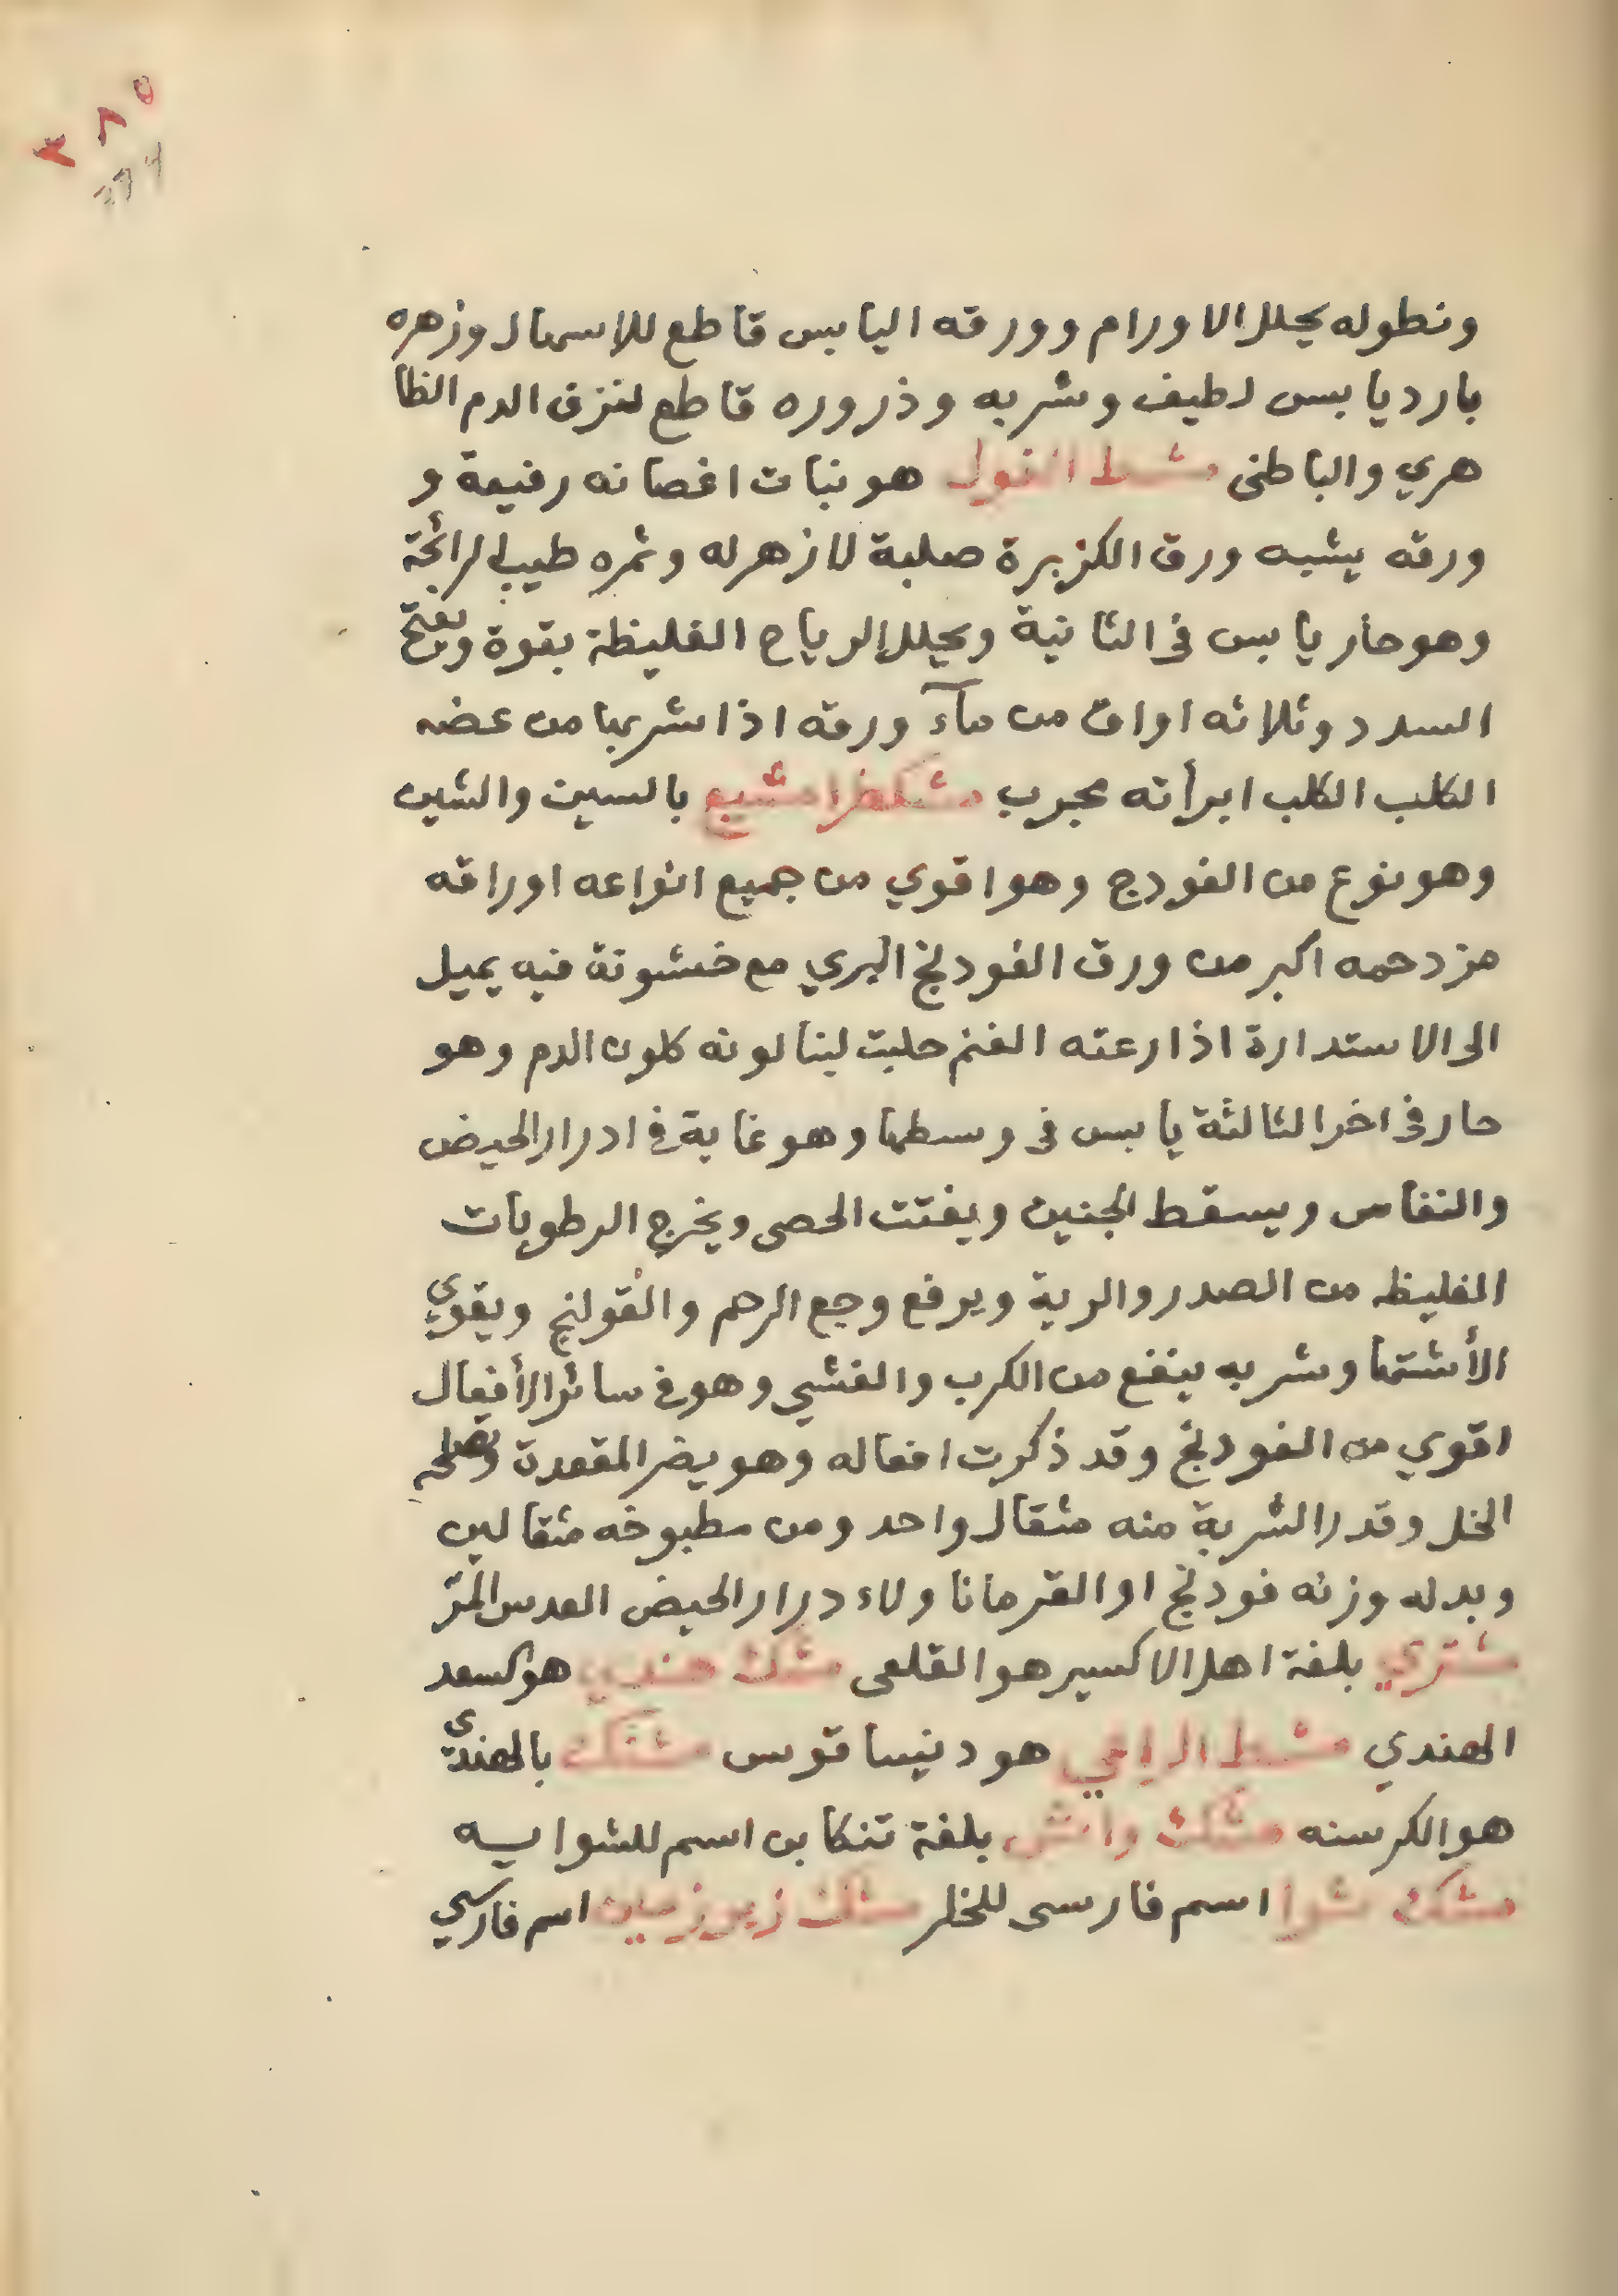 ٣٨٥
ونطوله يحلل الاورام وورقه اليابس قاطع للاسهال وزهره
بارد يابس لطيف وشربه وذروره قاطع لنزف الدم الظا
هري والباطنى مشط الغول هو نبات اغصانه رفيعة و
ورقه يشبه ورق الكزبرة صلبة لا زهر له وثمره طيب الرائحة
وهو حار يابس فى الثانية ويحلل الرياح الغليظة بقوة ويفتح
السدد وثلاثه اواق من مآء ورقه اذا شربها من عضه
الكلب الكلب ابرأته مجرب مشكطرامشيع بالسين والشين
وهو نوع من الفودج وهو اقوي من جميع انواعه اوراقه
مزدحمه اكبر من ورق الفودنج البري مع خشونة فيه يميل
الى الاستدارة اذا رعته الغنم حلبت لبنا لونه كلون الدم وهو
حار فى اخر الثالثة يابس فى وسطها وهو غاية فى ادرار الحيض
والنفاس ويسقط الجنين ويفتت الحصى ويخرج الرطوبات
الغليظه من الصدر والرية ويرفع وجع الرحم والقولنج ويقوي
الأشتها وشربه ينفع من الكرب والغشي وهو فى سائر الأفعال
اقوي من الفودنج وقد ذكرت افعاله وهو يضر المقعدة ويصلحه
الخل وقدر الشربة منه مثقال واحد ومن مطبوخه مثقالين
وبدله وزنه فودنج او القرمانا ولاء درار الحيض العدس المرّ
مشتري بلغة اهل الاكسير هو القلعى مشك هندي هو السعد
الهندي مشط الراعي هو دنيساقوس مشنك بالهندي
هو الكرسنه مشك وانش بلغة تنكابن اسم للشوايه
مشك شوا اسم فارسى للخلر مشك زير زمين اسم فارسي